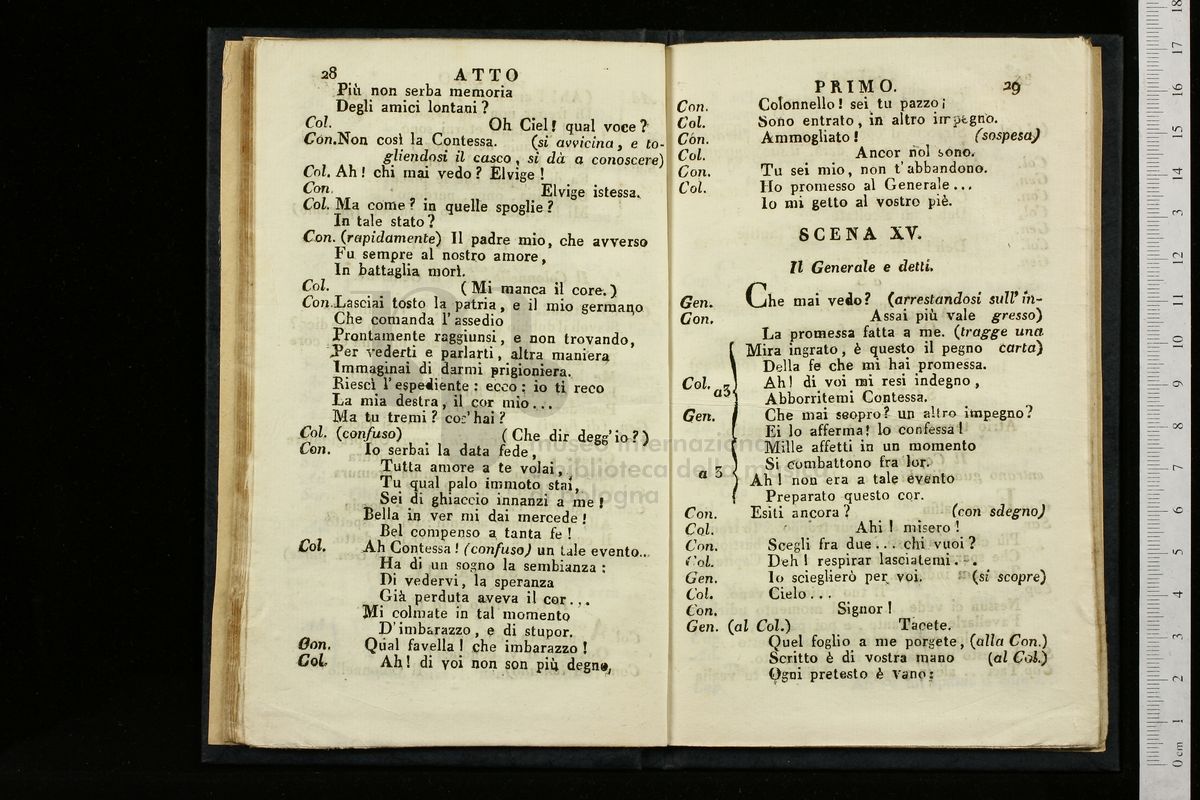 28 ATTO
Più non serba memoria
Degli amici lontani?
Col. Oh Ciel! qual voce?
Con. Non così la Contessa. (si avvicina, e to-
gliendosi il casco, si dà a conoscere)
Col. Ah! chi mai vedo? Elvige!
Con. Elvige istessa.
Col. Ma come? in quelle spoglie?
In tale stato?
Con. (rapidamente) Il padre mio, che avverso
Fu sempre al nostro amore,
In battaglia morì.
Col. (Mi manca il core.)
Con. Lasciai tosto la patria, e il mio germano
Che comanda l'assedio
Prontamente raggiunsi, e non trovando,
Per vederti e parlarti, altra maniera
Immaginai di darmi prigioniera.
Riescì l'espediente: ecco: io ti reco
La mia destra, il cor mio...
Ma tu tremi? cos'hai?
Col. (confuso) (Che dir degg'io?)
Con. Io serbai la data fede,
Tutta amore a te volai,
Tu qual palo immoto stai,
Sei di ghiaccio innanzi a me!
Bella in ver mi dai mercede!
Bel compenso a tanta fe!
Col. Ah Contessa! (confuso) un tale evento...
Ha di un sogno la sembianza:
Di vedervi, la speranza
Già perduta aveva il cor...
Mi colmate in tal momento
D'imbarazzo, e di stupor.
Con. Qual favella! che imbarazzo!
Col. Ah! di voi non son più degno,
PRIMO. 29
Con. Colonnello! sei tu pazzo;
Col. Sono entrato, in altro impegno.
Con. Ammogliato! (sospesa)
Col. Ancor nol sono.
Con. Tu sei mio, non t'abbandono.
Col. Ho promesso al Generale...
Io mi getto al vostro piè.
SCENA XV.
Il Generale e detti.
Gen. Che mai vedo? (arrestandosi sull'in-
Con. Assai più vale gresso)
La promessa fatta a me. (tragge una
Mira ingrato, è questo il pegno carta)
Della fe che mi hai promessa.
Col. a3 Ah! di voi mi resi indegno,
Abborritemi Contessa.
Gen. Che mai scopro? un altro impegno?
Ei lo afferma! lo confessa!
Mille affetti in un momento
a 3 Si combattono fra lor.
Ah! non era a tale evento
Preparato questo cor.
Con. Esiti ancora? (con sdegno)
Col. Ahi! misero!
Con. Scegli fra due... chi vuoi?
Col. Deh! respirar lasciatemi...
Gen. Io scieglierò per voi. (si scopre)
Col. Cielo...
Con. Signor!
Gen. (al Col.) Tacete.
Quel foglio a me porgete, (alla Con.)
Scritto è di vostra mano (al Col.)
Ogni pretesto è vano:
museo internazionale
biblioteca della musica
di bologna
0 cm 1 2 3 4 5 6 7 8 9 10 11 12 13 14 15 16 17 18